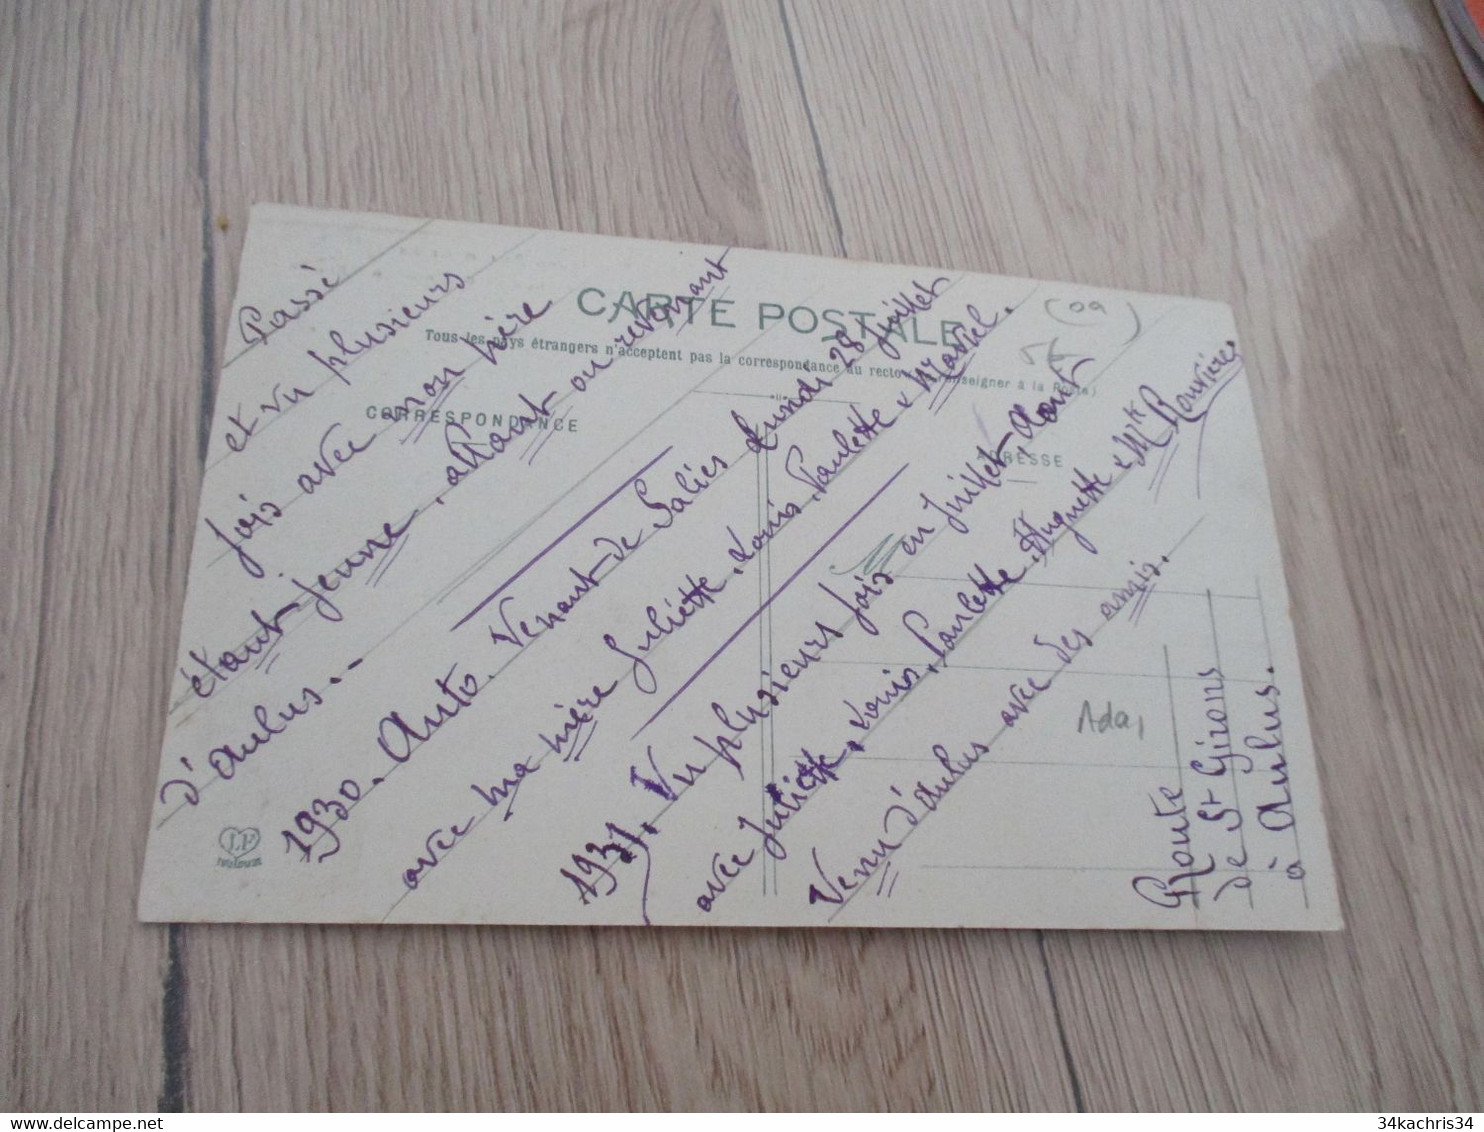 CARTE POSTALE
Tous les pays étrangers n'acceptent pas la correspondance au recto (se renseigner à la Poste)
CORRESPONDANCE
ADRESSE
(09)
Passé
et vu plusieurs
fois avec mon père
étant jeune, allant ou revenant
d'Aulus. -
1930. Auto. Venant de Salies Lundi 28 Juillet
avec ma mère Juliette, Louis, Paulette &
1931, Vu plusieurs fois en Juillet-Août
avec Juliette, Louis, Paulette, Huguette & Mlle Rouvière
Venu d'Aulus avec des amis.
Route
de St Girons
à Aulus.
LF
Toulouse
34kachris34